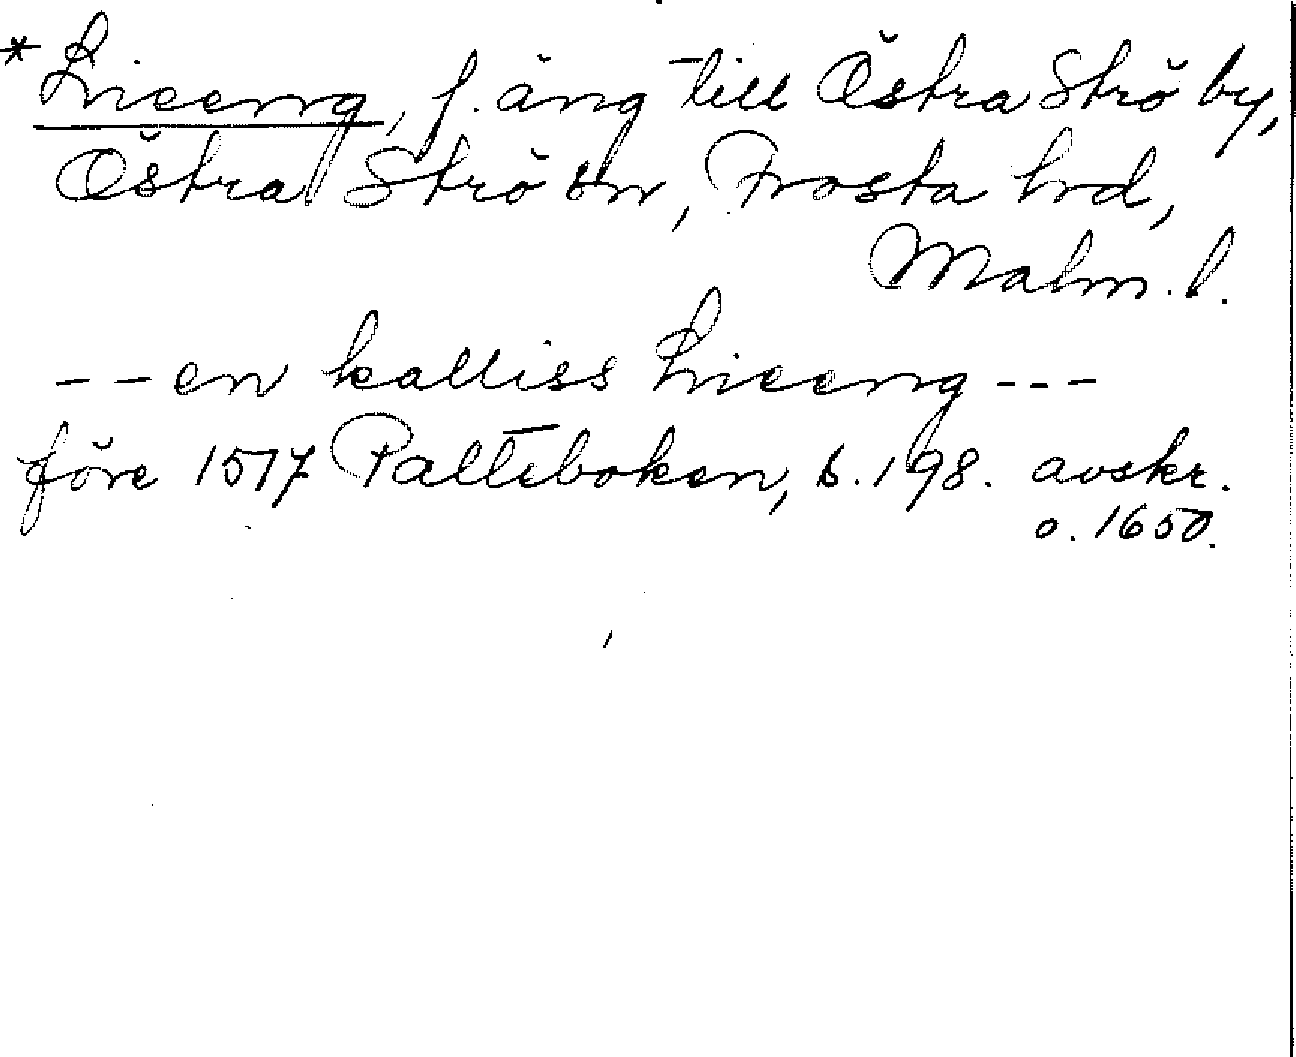 *Lnieeng, f. äng till Östra Strö by,
Östra Strö sn, Frosta hd,
Malm. l.
-- en kalliss Lnieeng ---
före 1517 Palteboken, s. 198. avskr.
o. 1650.